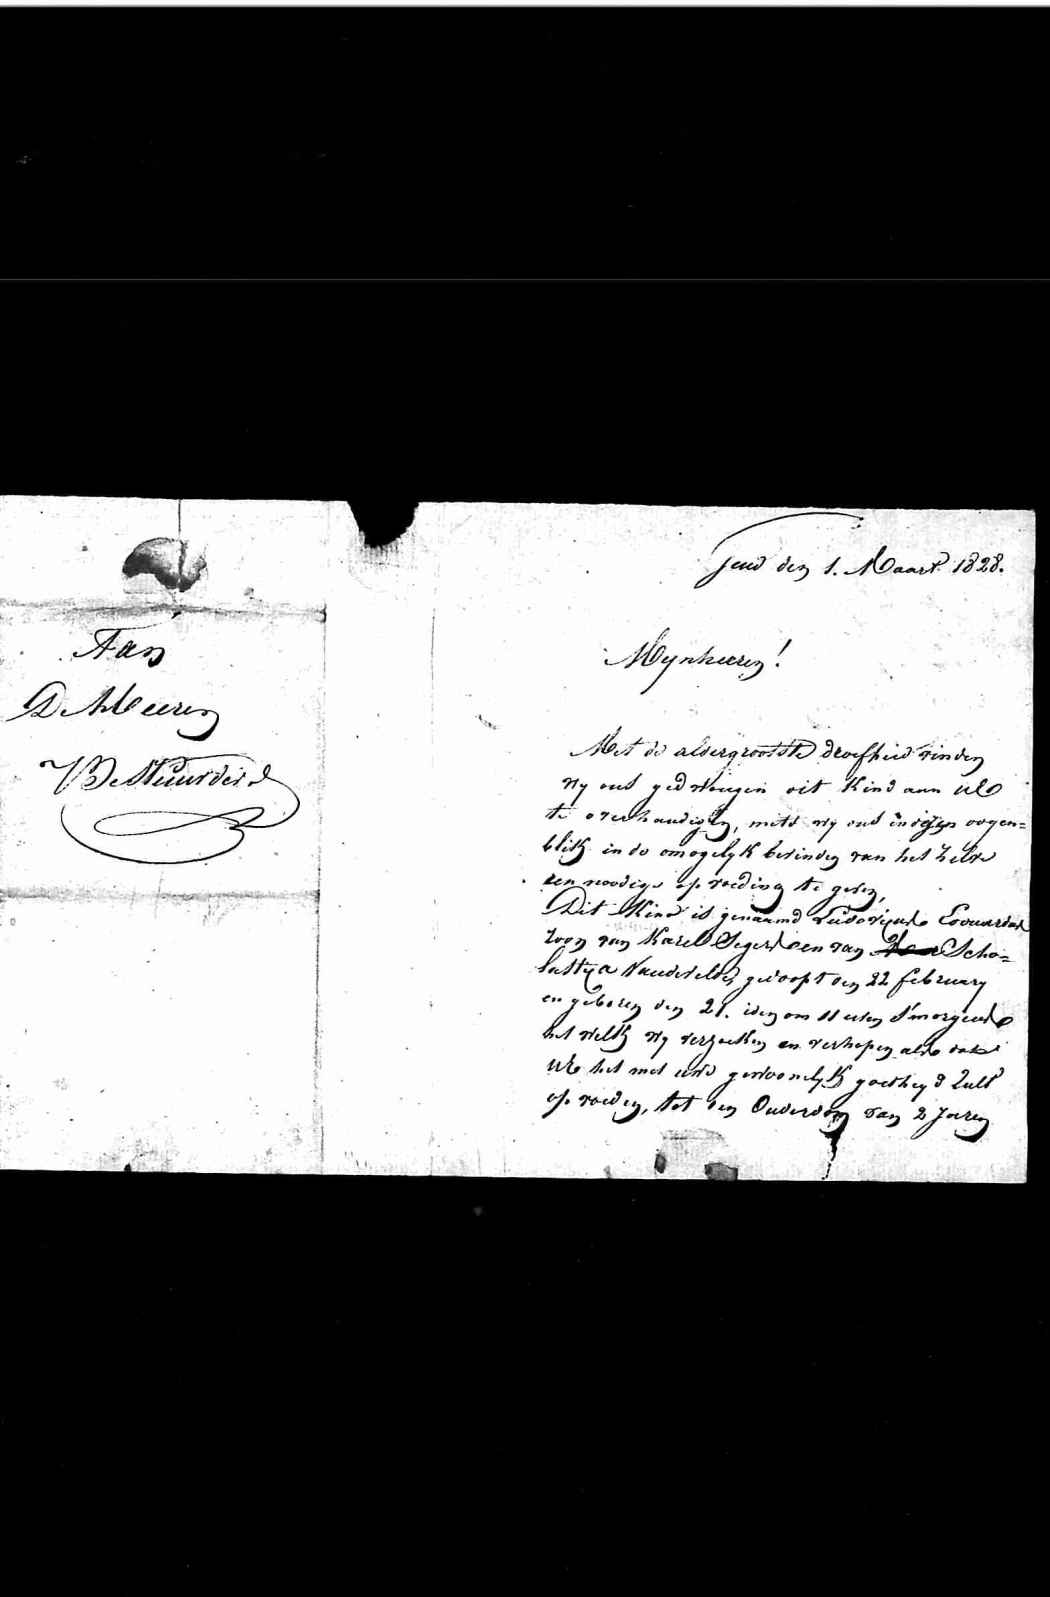 Aan
De Heeren
Bestuurders
Gend den 1. Maart 1828.
Mynheeren!
Met de aldergrootste droefheid vinden
wy ons gedwongen dit Kind aan ulE
te overhandigen, mits wy ons in dezen oogen=
blik in de omogelyk bevinden van het zelve
een noodige opvoeding te geven,
Dit Kind is genaamd Ludovicus Eduardus
zoon van Karel Segers en van Scho=
lastica Vandevelde, gedoopt den 22 february
en geboren den 21. iden om 11 uren S'morgens
het welk wy verzoeken en verhopen als dat
ulE het met uwe gewoonelyk goetheyd zult
op voeden, tot den Ouderdom van 2 Jaren